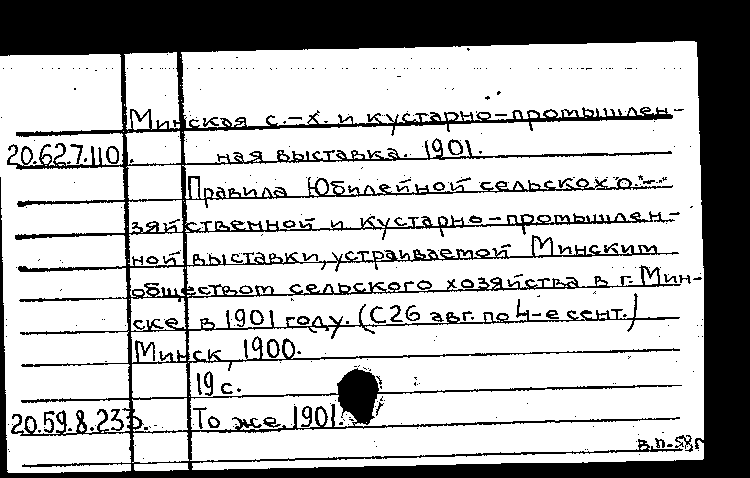 Минская с.-х. и кустарно-промышлен-
20.62.7.110. ная выставка. 1901.
Правила Юбилейной сельскохо-
зяйственной и кустарно-промышлен-
ной выставки, устраиваемой Минским
обществом сельского хозяйства в г. Мин-
ске в 1901 году. (С 26 авг. по 4-е сент.)
Минск, 1900.
19 с.
20.59.8.233. То же. 1901.
В.п-58г